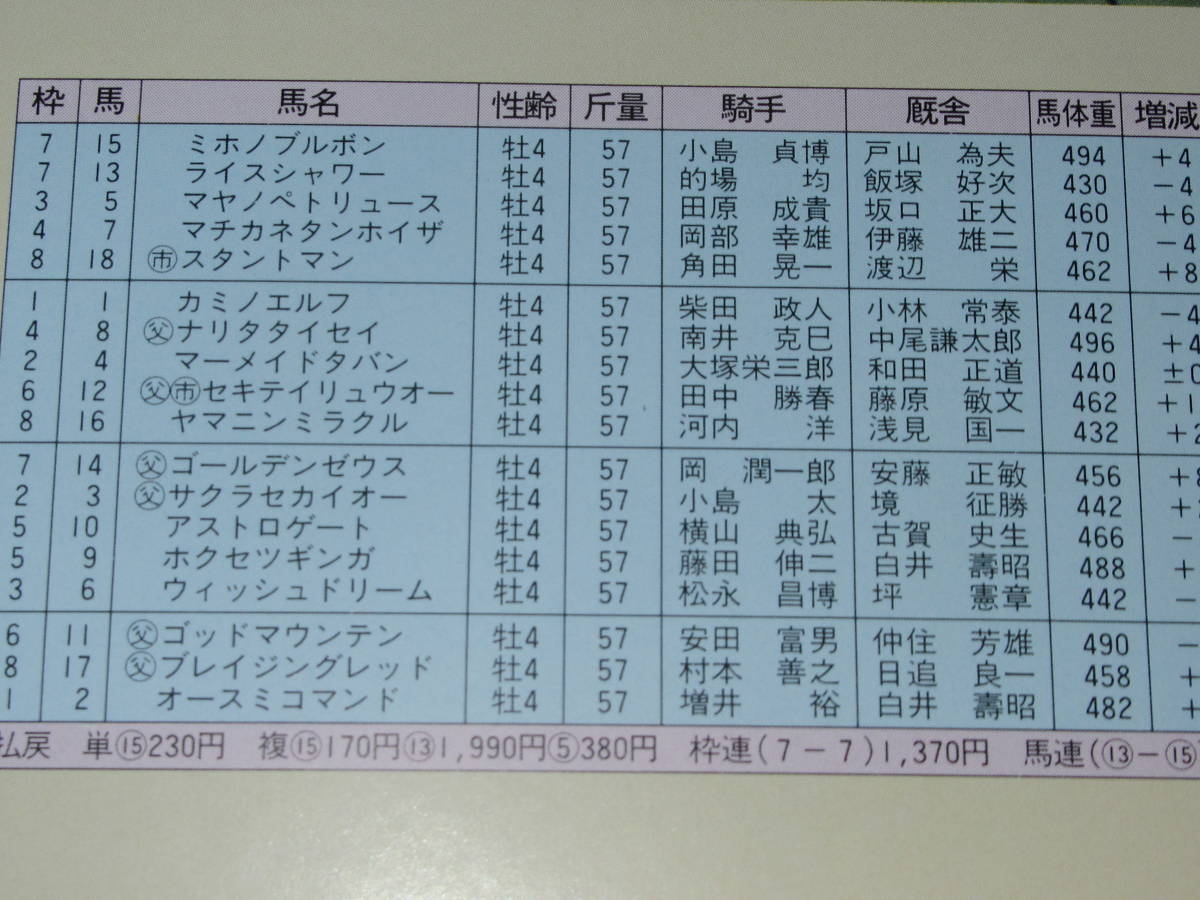 枠 馬 馬名 性齢 斤量 騎手 厩舎 馬体重 増減
7 15 ミホノブルボン 牡4 57 小島 貞博 戸山 為夫 494 +4
7 13 ライスシャワー 牡4 57 的場 均 飯塚 好次 430 -4
3 5 マヤノペトリュース 牡4 57 田原 成貴 坂口 正大 460 +6
4 7 マチカネタンホイザ 牡4 57 岡部 幸雄 伊藤 雄二 470 -4
8 18 ㊟スタントマン 牡4 57 角田 晃一 渡辺 栄 462 +8
1 1 カミノエルフ 牡4 57 柴田 政人 小林 常泰 442 -4
4 8 父ナリタタイセイ 牡4 57 南井 克巳 中尾謙太郎 496 +4
2 4 マーメイドタバン 牡4 57 大塚栄三郎 和田 正道 440 ±0
6 12 父市セキテイリュウオー 牡4 57 田中 勝春 藤原 敏文 462 +1
8 16 ヤマニンミラクル 牡4 57 河内 洋 浅見 国一 432 +2
7 14 父ゴールデンゼウス 牡4 57 岡 潤一郎 安藤 正敏 456 +
2 3 父サクラセカイオー 牡4 57 小島 太 境 征勝 442 +
5 10 アストロゲート 牡4 57 横山 典弘 古賀 史生 466 -
5 9 ホクセツギンガ 牡4 57 藤田 伸二 白井 壽昭 488 +
3 6 ウィッシュドリーム 牡4 57 松永 昌博 坪 憲章 442 -
6 11 父ゴッドマウンテン 牡4 57 安田 富男 仲住 芳雄 490 -
8 17 父ブレイジングレッド 牡4 57 村本 善之 日迫 良一 458 +
1 2 オースミコマンド 牡4 57 増井 裕 白井 壽昭 482 +
払戻 単⑮230円 複⑮170円⑬1,990円⑤380円 枠連(7-7)1,370円 馬連(⑬-⑮)